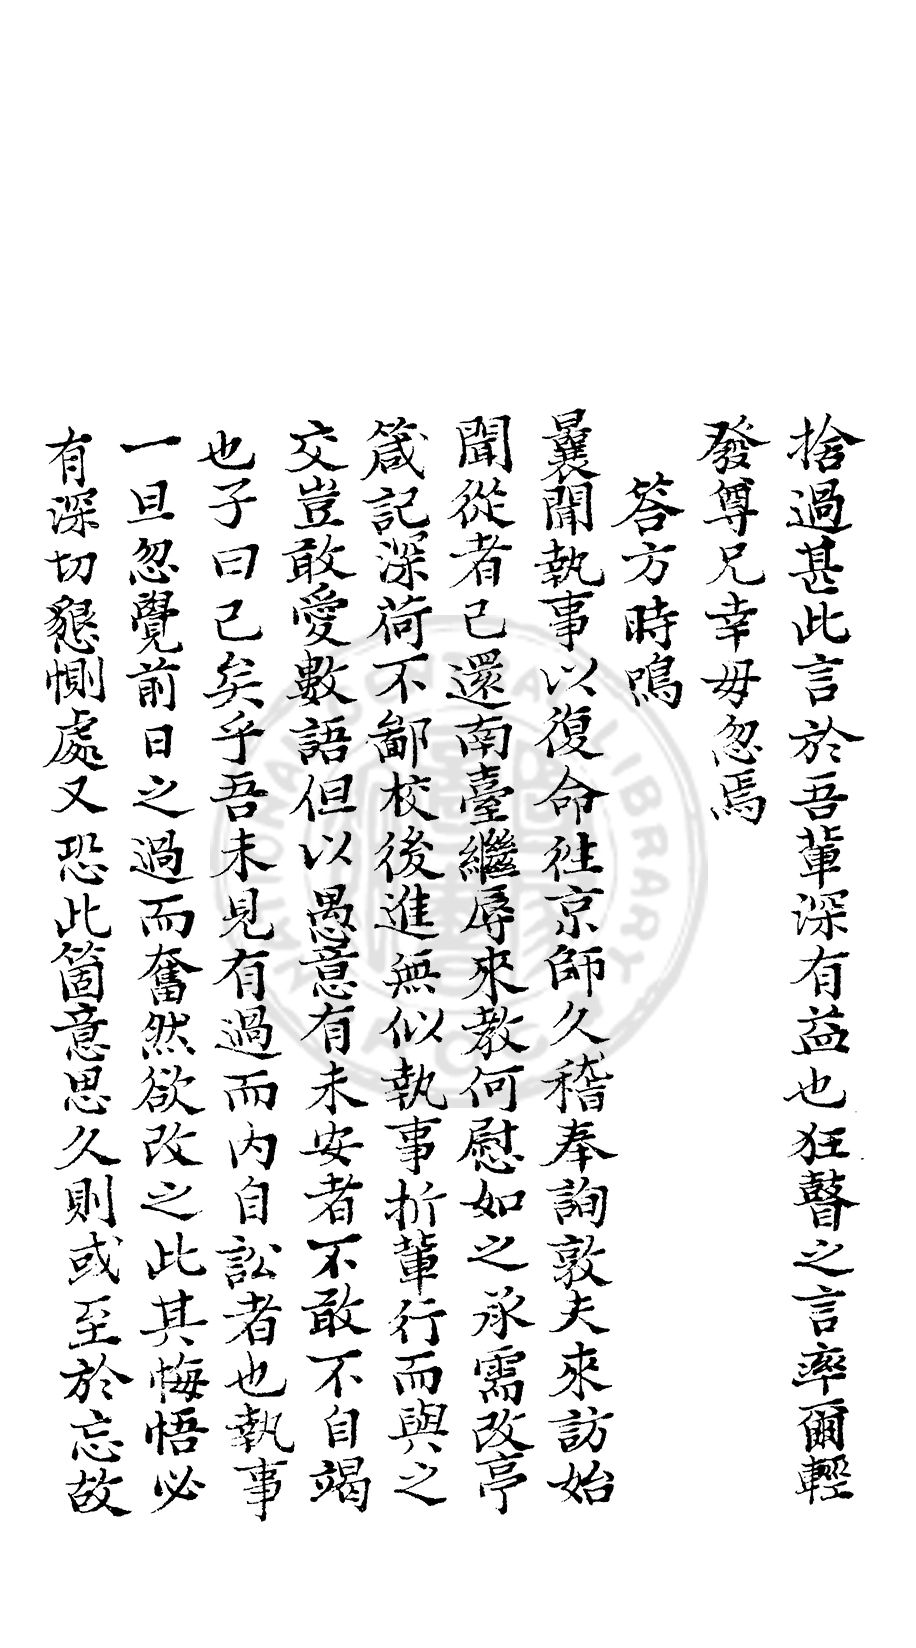 捨過甚此言於吾軰深有益也狂瞽之言率爾輕
發尊兄幸毋忽焉
答方時鳴
曩聞執事以復命徃京師久稽奉詢敦夫來訪始
聞從者已還南臺繼辱來教何慰如之承需改亭
箴記深荷不鄙校後進無似執事折軰行而與之
交豈敢愛數語但以愚意有未安者不敢不自竭
也子曰已矣乎吾未見有過而内自訟者也執事
一旦忽覺前日之過而奮然欲改之此其悔悟必
有深切懇惻處又恐此箇意思久則或至於忘故